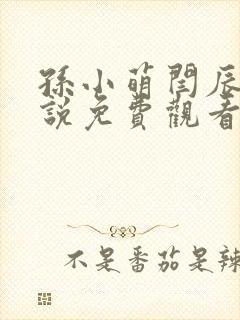 孫小萌閆辰
說免費觀看
不是番茄是辣